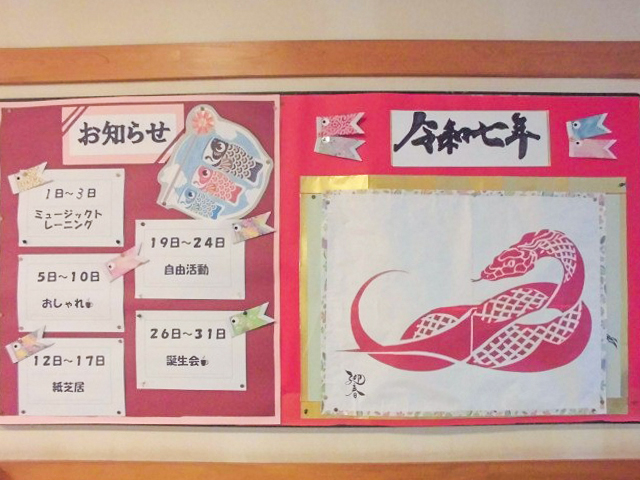 お知らせ
1日～3日
ミュージックト
レーニング
5日～10日
おしゃれ
12日～17日
紙芝居
19日～24日
自由活動
26日～31日
誕生会
令和七年
迎春